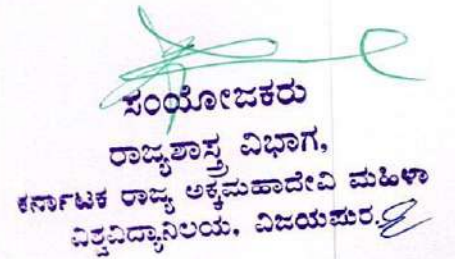 ಸಂಯೋಜಕರು
ರಾಜ್ಯಶಾಸ್ತ್ರ ವಿಭಾಗ,
ಕರ್ನಾಟಕ ರಾಜ್ಯ ಅಕ್ಕಮಹಾದೇವಿ ಮಹಿಳಾ
ವಿಶ್ವವಿದ್ಯಾನಿಲಯ, ವಿಜಯಪುರ.